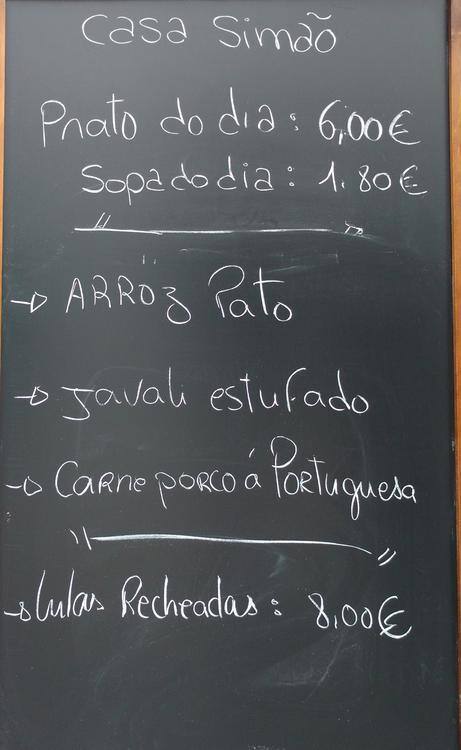 Casa Simão
Prato do dia: 6,00€
Sopa do dia: 1.80€
ARROZ Pato
Javali estufado
Carne porco á Portuguesa
Lulas Recheadas: 8,00€